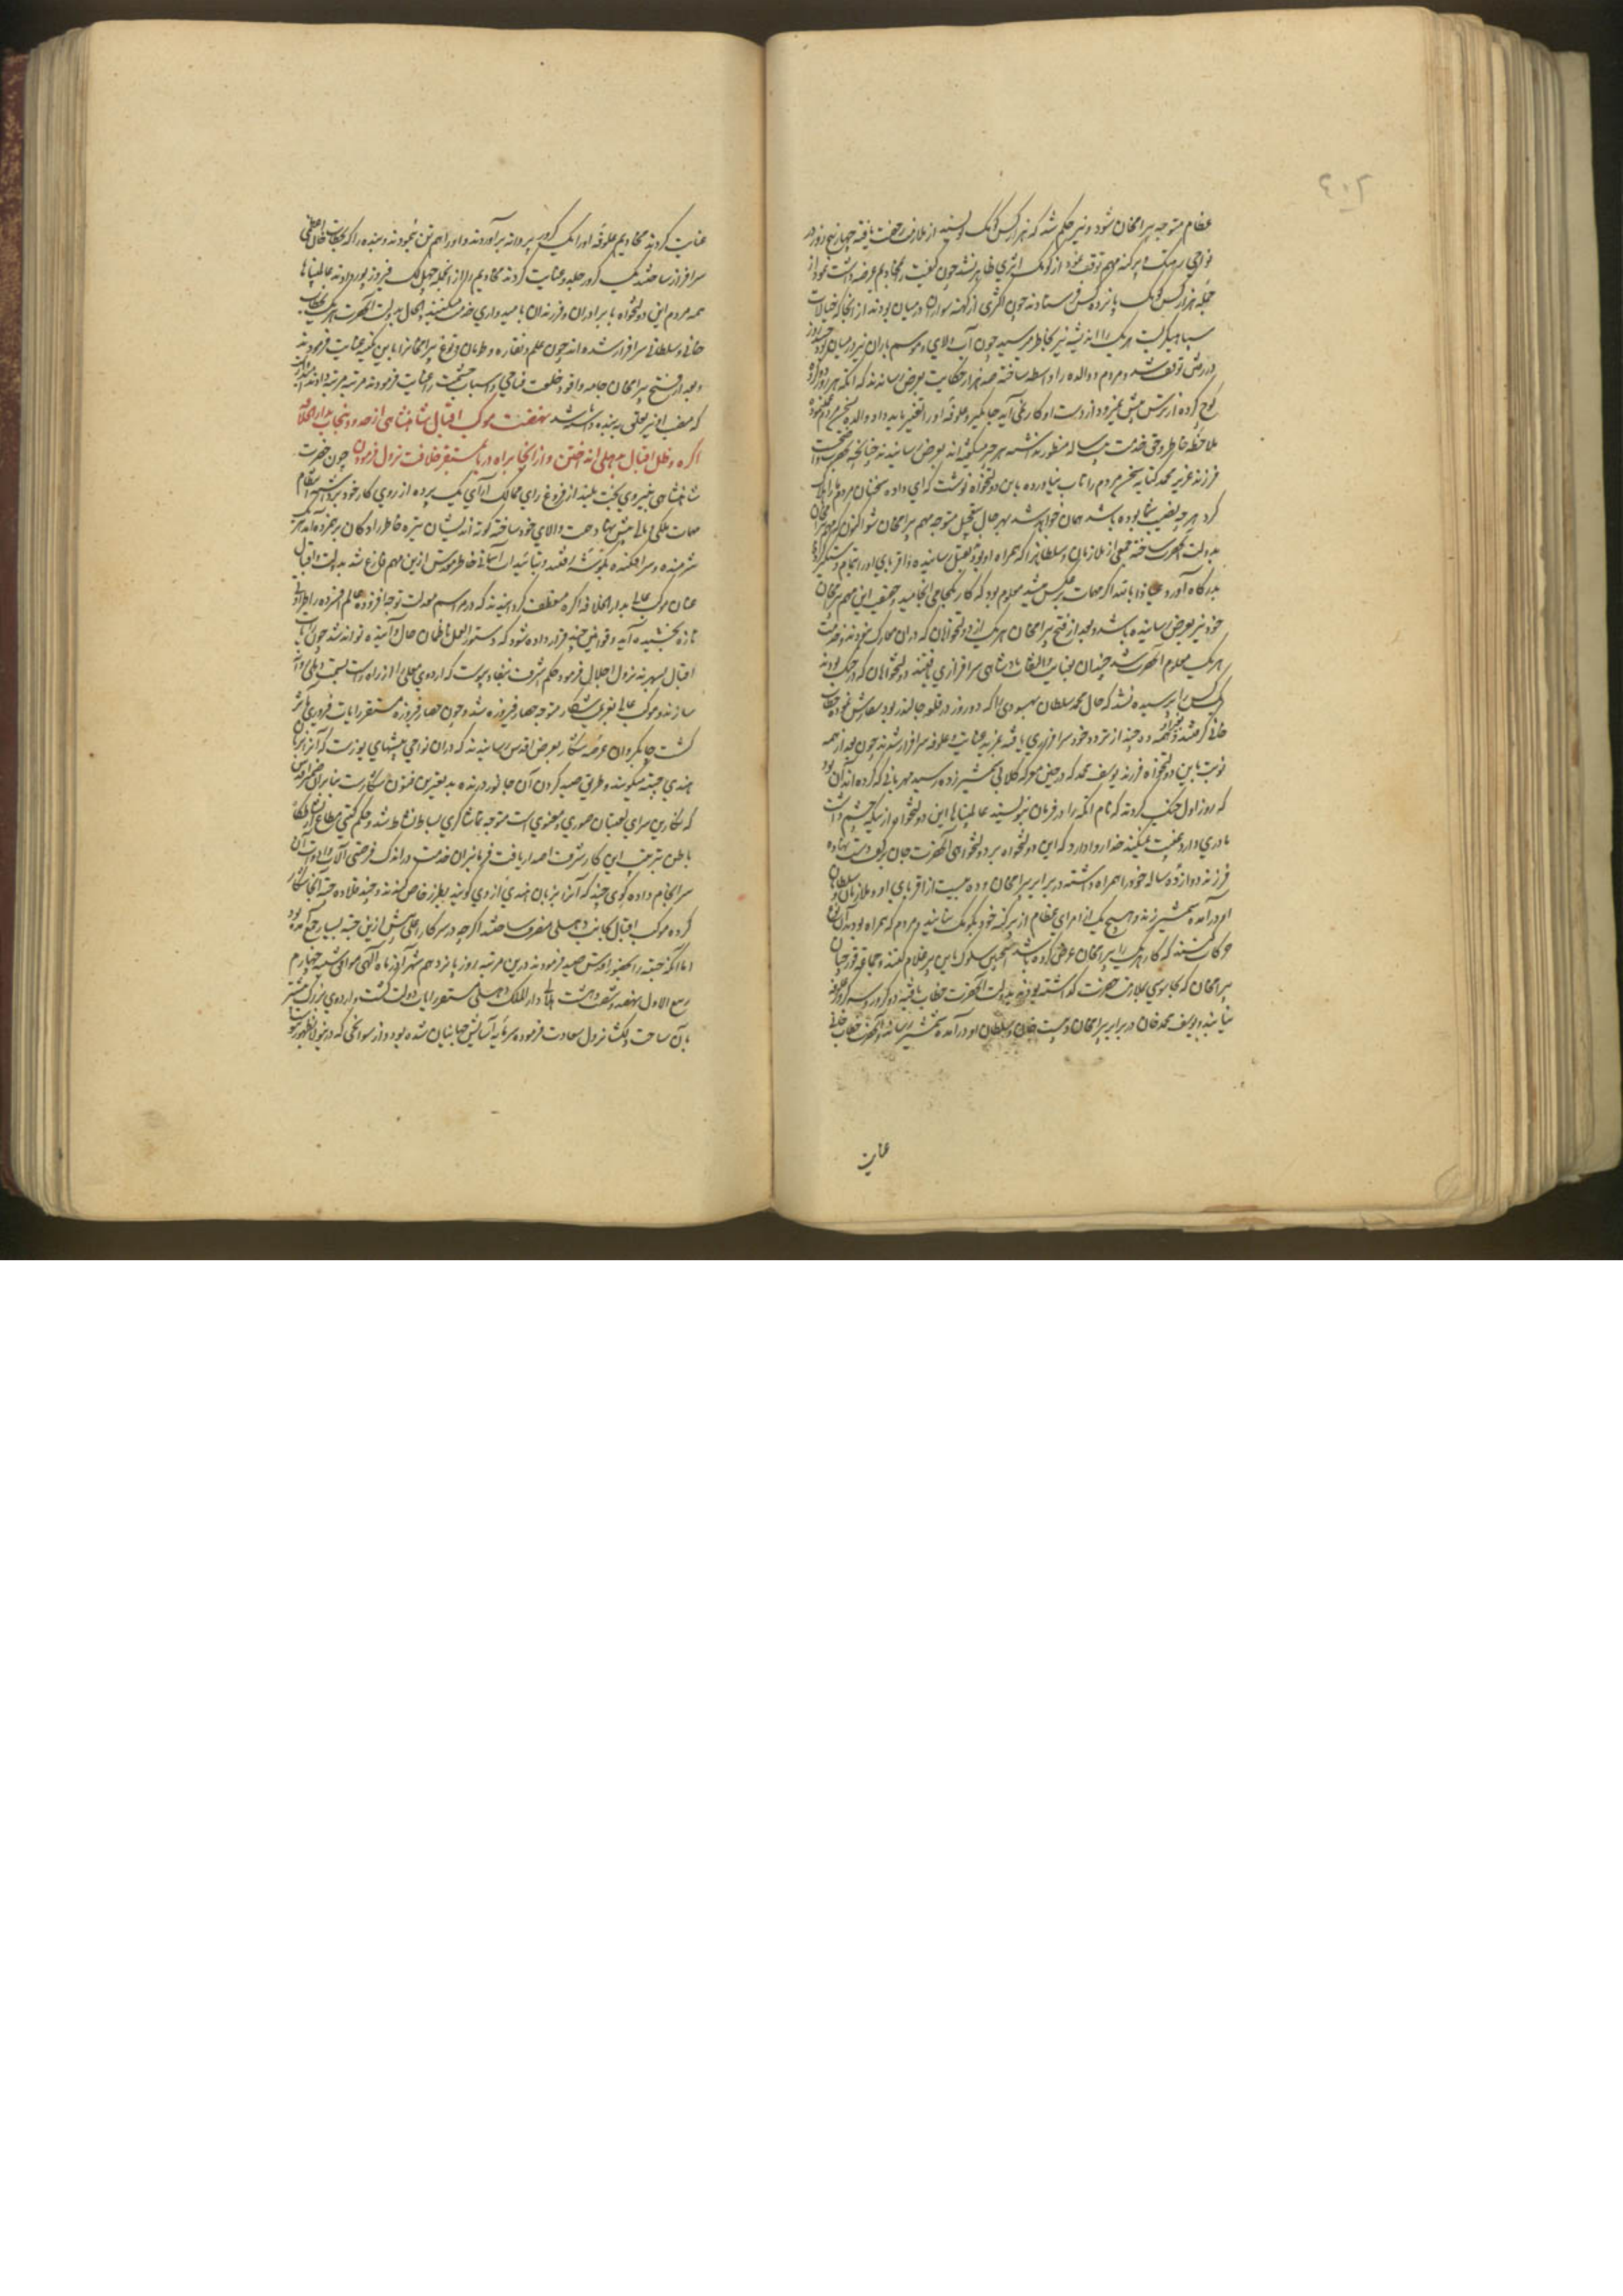 عظام متوجه بیرامخان شود و نیز حکم شد که هزار کس کمک نویسند از ملازمت رخصت یافته چهار پنج روز در
نواحی پرگنه مهم توقف نمود از کومک اثری ظاهر نشد چون کیفیت را بخادیم عرضه داشت نمود از
جمله هزار کس کمک پانزده کس فرستادند چون لشکری از کهنه سواران در میان بودند از آنجا که خیالات
سپاهیگریست هر یک را اندیشه بخاطر میرسید چون آب و لای و موسم باران نیز در میان بود چند روز
توقف شد و مردم والده را واسطه ساخته صد هزار حکایت بعرض رساندند که اتکه هر روز دو کروه
کوچ کرده از ترس پیش نمیرود از دست او کاری نمی آید جایگیر و علوفه او را تغییر باید داد والده سخن مردم
ملاحظه خاطر و حق خدمت بیست ساله منظور نداشته هر چه میگفتند بعرض رسانیدند چنانچه
فرزند عزیز محمد کنایه سخن مردم را تاب نیاورده باین دولتخواه نوشت که ای داده سخنان مردم ما را هلاک
کرد هر چه نصیب شما بوده باشد همان خواهد شد بهر حال بتعجیل متوجه مهم بیرامخان شو اکنون که
بدولت آنحضرت ساخته جمعی از ملازمان و سلطانان را که همراه او بود بقتل رسانیده و اقربای او را تمام دستگیر
بدرگاه آورد عیاذا بالله اگر مهمات برعکس میشد معلوم بود که کار بکجا می انجامید و حقیقت این مهم بیرامخان
خود نیز بعرض رسانیده باشد و بعد از فتح بیرامخان هر یک از دولتخواهان که در آن معارک نبودند و خدمت
هر یک معلوم آنحضرت شد چندان بعنایت و التفات پادشاهی سرافرازی یافتند دولتخواهان که در جنگ بودند
هیچ کس را پرسیده نشد که جان محمد سلطان بهسودی را که دو روز در قلعه جالندر بود سفارش نموده خطاب
خانی گرفتند و چند از تردد خود سرافرازی یافته بمزید عنایت و علوفه سرافراز شدند چون بعد از همه
نوبت باین دولتخواه و فرزند یوسف محمد که در عین معرکه کلانی شمشیر زده رسید مهربانی که کرده اند آن بود
که روز اول جنگ کردند که نام اتکه را در فرمان ننویسند عالمپناها این دولتخواه از بیگه چشم داشت
مادری دارد غیبت میکند خدا روا دارد که این دولتخواه بر دولتخواهی آنحضرت جان بر کف دست نهاده
فرزند دوازده ساله خود را همراه داشته در برابر بیرامخان و ده بیست از اقربای او و ملازمان و سلطانان
او در آمده شمشیر زند و هیچ یک از امرای عظام از پرگنه خود بکومک نیایند و مردم که همراه بودند
حرکات کنند که کار هر یک را بیرامخان عرض کرده باشد اینچنین سلوک باین پیر غلام کنند و جماعه قورچیان
بیرامخان که بجاسوسی بملازمت حضرت گذاشته بود بدولت آنحضرت خطاب یافته دو کرور و سه کرور علوفه
بیابند و یوسف محمد خان در برابر بیرامخان و بیست خان و سلطان او در آمده شمشیر رساند آنحضرت خطاب خانی
عنایت
عنایت کردند مخادیم علوفه او را یک کرور پروانه بر آوردند و او را هم تن نمودند و بنده را که بخطاب خان اعظمی
سرافراز ساختند یک کرور جلدو عنایت کردند مخادیم را از آنجمله چهل لک فیروزپور دادند عالمپناها
همه مردم این دولتخواه با برادران و فرزندان بامیدواری خدمت میکنند و الحال بدولت آنحضرت هر یک بخطاب
خانی و سلطانی سرافراز شده اند چون علم و نقاره و طومان و توغ بیرامخان را باین کمینه عنایت فرمودند
و بعد از فتح بیرامخان جامه و اقو و خلعت فتاحی و اسباب حشمت را عنایت فرمودند مرتبه مرتبه دادند امید آنست
که منصب او نیز تعلق به بنده داشته باشد نهضت موکب اقبال شاهنشاهی از حدود پنجاب بدار الخلافه
اگره و ظل اقبال بدهلی انداختن و از آنجا براه دریا بمستقر خلافت نزول فرمودن چون حضرت
شاهنشاهی بنیروی بخت بلند از فروغ رای ممالک آرای یک پرده از روی کار خود برداشتند انتظام
مهمات ملکی و مالی پیش نهاد همت والای خود ساخته کوته اندیشان تیره خاطر و آزادگان بر همزده اند هر یک
شرمنده و سرافکنده بگوشه رفتند و بتائیدات آسمانی خاطر مقدس ازین مهم فارغ شد بدولت و اقبال
عنان موکب عالی بدار الخلافه اگره منعطف گردانیدند که در مواسم معدلت توجه افزوده عالم افسرده را طراوتی
تازه بخشیده آید و قوانین چند قرار داده شود که دستور العمل ناظمان حال و آینده تواند شد چون رایات
اقبال بسهرند نزول اجلال فرمود حکم اشرف بنفاذ پیوست که اردوی معلی را از راه راست بسمت دهلی روانه
سازند و موکب عالی بعزیمت شکار متوجه حصار فیروزه شد و چون حصار فیروزه مستقر رایات فیروزی مآثر
گشت چابکروان عرصه شکار بعرض اقدس رسانیدند که در آن نواحی بیشهای یوزست که آنرا بزبان
هندی چیته میگویند و طریق صید کردن آن جانور درنده بدیعترین فنون شکارست بنابرین ضمیر اقدس
که نگارین سرای لعبتان صوری و معنوی است متوجه تماشاگری بساط نشاط شد و حکم گیتی مطاع
باطن بترتیب این کار شرف اصدار یافت فرمانبران خدمت در اندک فرصتی آلات و ادوات آن
سرانجام داده گوی چند که آنرا بزبان هندی اودی گویند بطرز خاص کندند و چند قلاده چیته آنجا شکار
کرده موکب اقبال بجانب دهلی منصرف ساختند اگرچه در سرکار اعلی پیش ازین چیته بسیار جمع آمده بود
اما آنکه چیته را بحضور اقدس صید فرمودند درین مرتبه بود روز پانزدهم شهر آذر ماه الهی موافق شنبه چهارم
ربیع الاول نهصد و شصت و هشت هلالی دار الملک دهلی مستقر رایات دولت گشت و اردوی بزرگ پیشتر
بآن ساحت دلگشا نزول سعادت فرموده سرمایه آسایش جهانیان شده بود و از سوانحی که درینولا بظهور